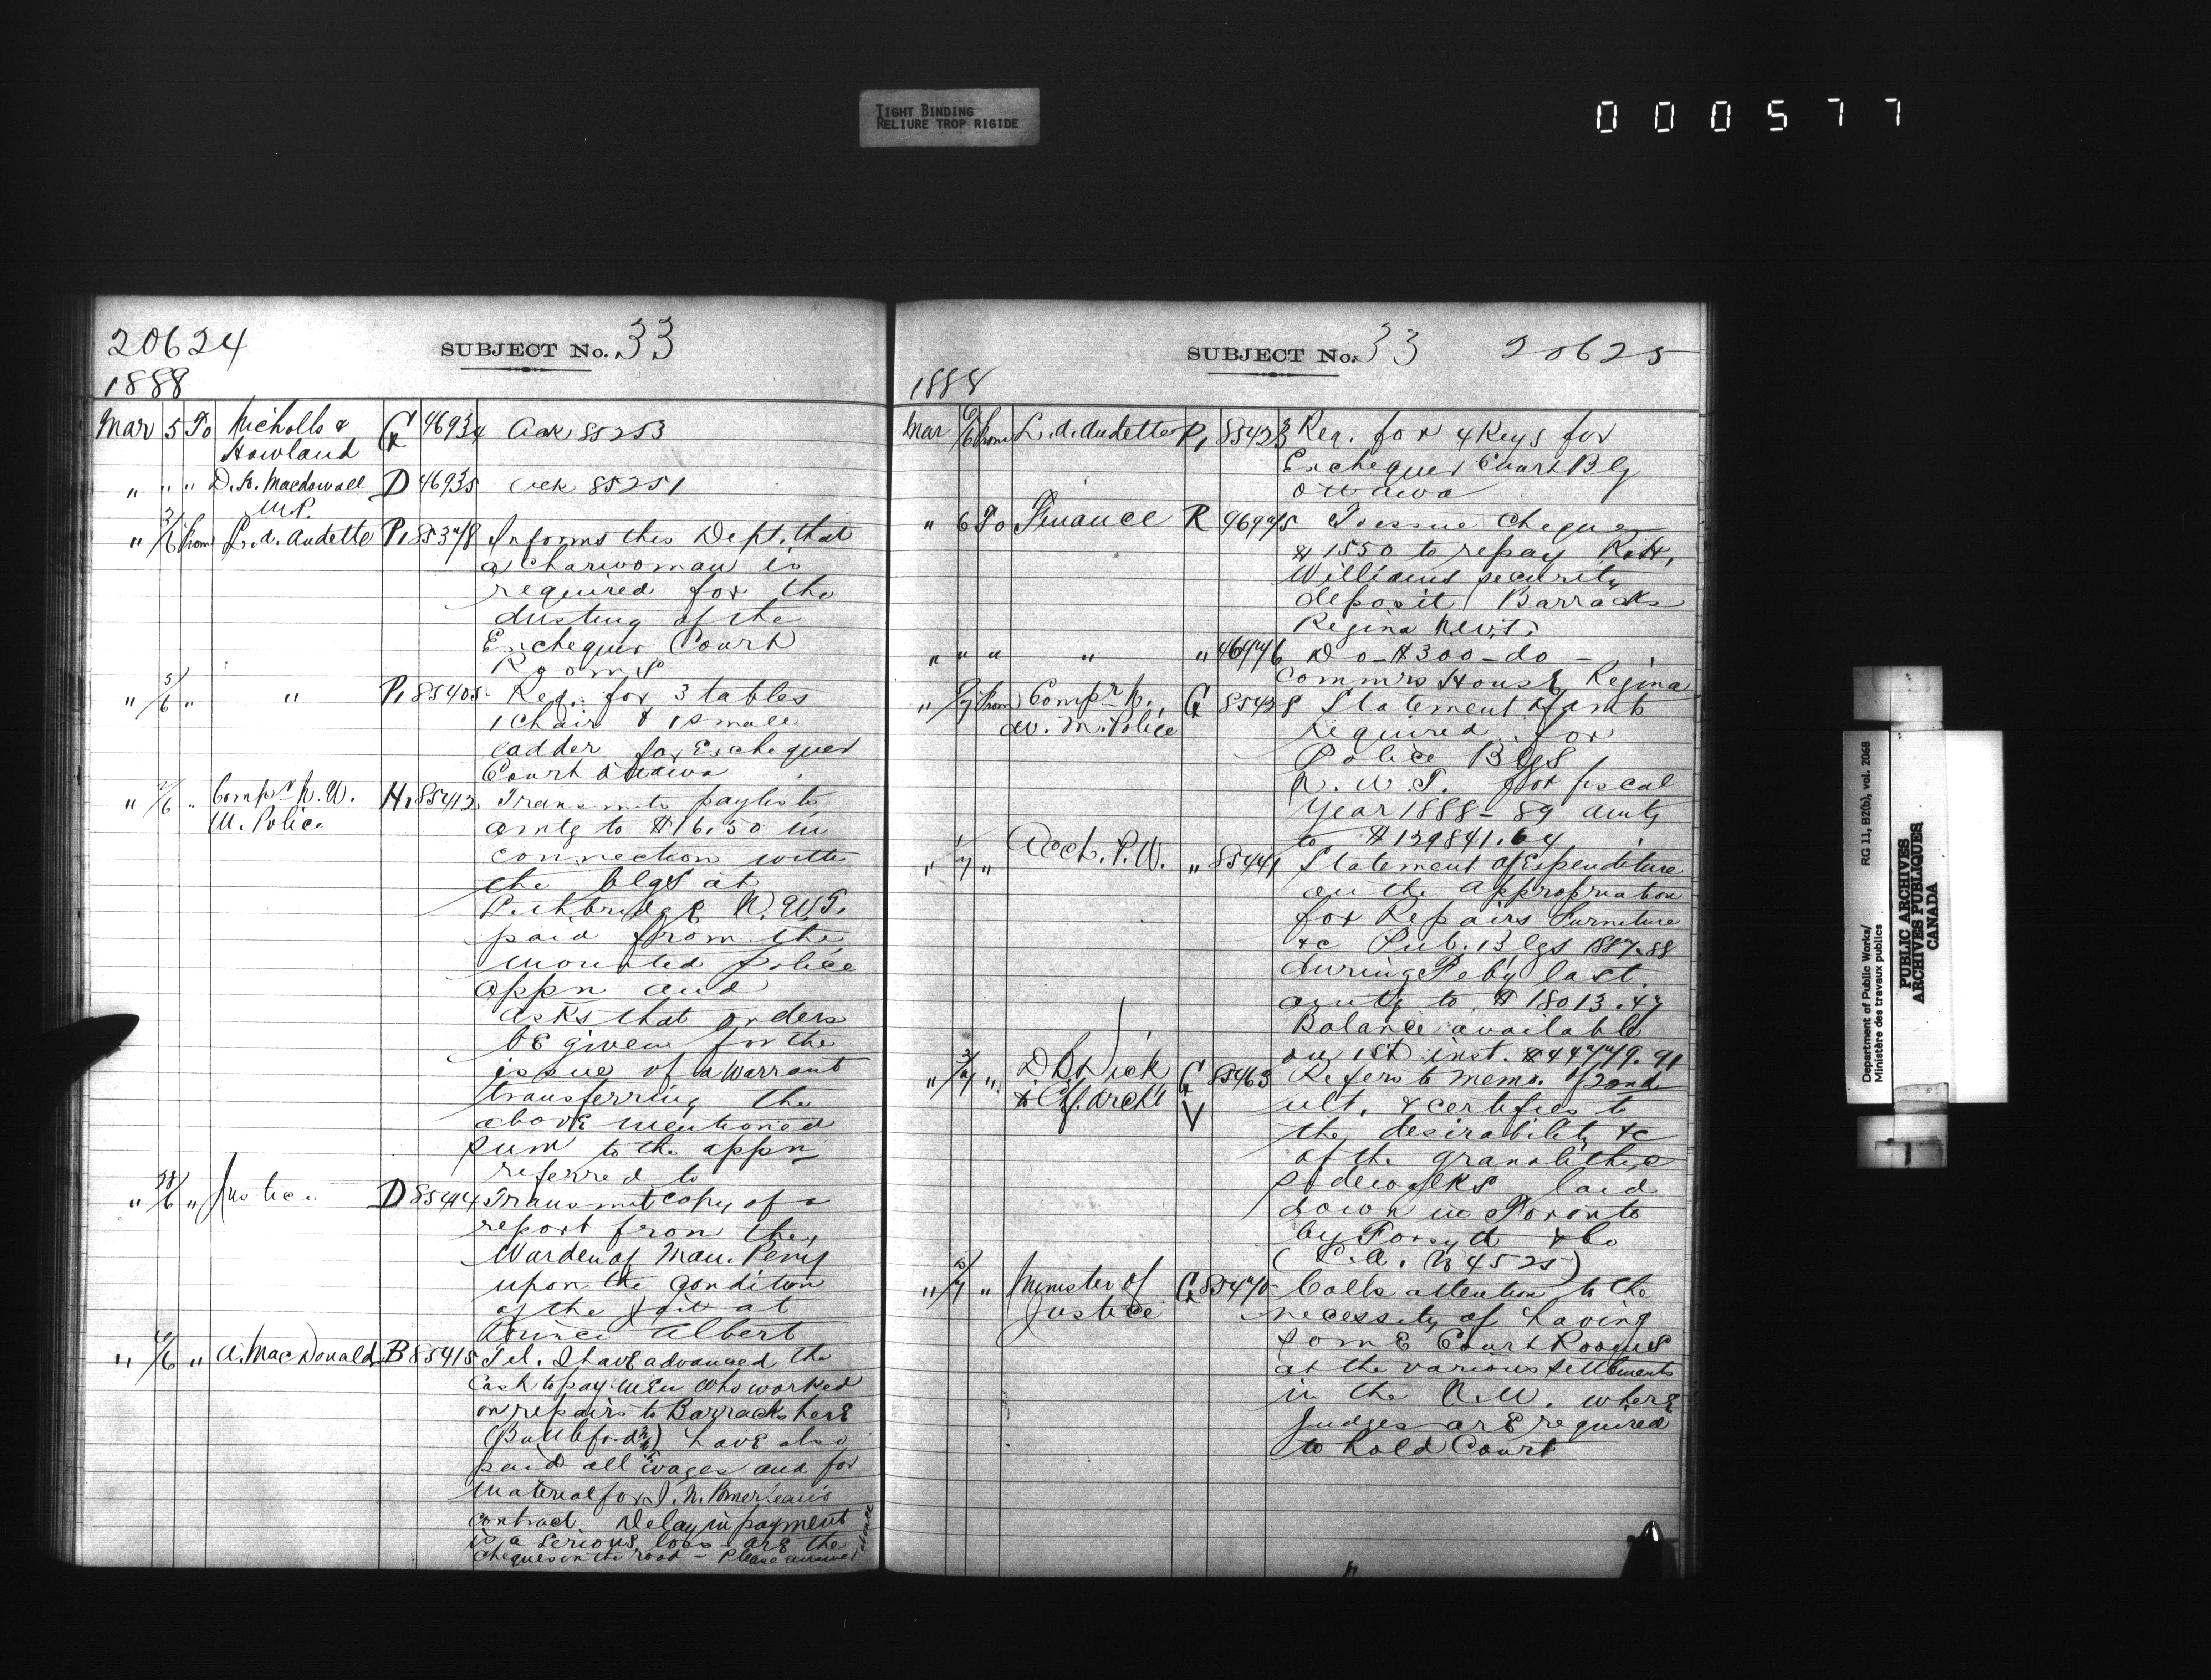 TIGHT BINDING
RELIURE TROP RIGIDE
000577
20624
SUBJECT No. 33
1888
Mar 5 To Nicholls & G 46934 Ack 85253
Howland
" " " D. H. Macdowall D 46935 Ack 85251
M.P.
" 3/6 from L. A. Audette P1 85378 Informs this Dept. that
a charwoman is
required for the
dusting of the
Exchequer Court
Rooms
" 5/6 " " P1 85405 Req. for 3 tables
1 chair & 1 small
ladder for Exchequer
Court Ottawa
" /6 " Compr N. W. H1 85412 Transmits paylists
M. Police
amtg to $16.50 in
connection with
the blgs at
Lethbridge N.W.T.
paid from the
mounted police
appn and
asks that orders
be given for the
issue of a warrant
transferring the
above mentioned
sum to the appn
referred to
" 28/6 " Justice D 85414 Transmit copy of a
report from the
Warden of Man. Peny
upon the condition
of the jail at
Prince Albert
" 6/6 " A. MacDonald B 85415 Tel. I have advanced the
Cash to pay men who worked
on repairs to Barracks here
(Battleford) have also
paid all wages and for
material for J. N. Pomerleau's
contract Delay in payment
is a serious loss - are the
cheques in the road - Please answer
SUBJECT No. 33 20625
1888
Mar 6/6 from L. A. Audette P1 85423 Req. for 4 Keys for
Exchequer Court Blg
Ottawa
" 6 To Finance R 46975 To issue Cheque
$1550 to repay R. H.
Williams security
deposit Barracks
Regina N.W.T.
" " " " " 46976 Do - $300 - do -
Commrs House Regina
" /7 from Compr N. G 85428 Statement of amts
W. M. Police
required for
Police Blgs
N. W. T. for fiscal
Year 1888-89 amtg
to $129841.64
" 1/7 " Acct. P. W. " 85441 Statement of Expenditure
on the Appropriation
for Repairs Furniture
&c Pub. Blgs 1887-88
during Feby last
amtg to $18013.47
Balance available
on 1st inst. $44779.91
" 3/7 " D B Dick G 85463 Refers to memo. of 2nd
& Cf. Archt V
ult. & certifies to
the desirability &c
of the granolithic
sidewalks laid
down in Toronto
by Forsyth & Co
(C.A. No 4525)
" 5/7 " Minister of G 85470 Calls attention to the
Justice
necessity of having
some Court Rooms
at the various settlements
in the N.W. where
Judges are required
to hold Court
Department of Public Works/ RG 11, B2(b), vol. 2068
Ministère des travaux publics
PUBLIC ARCHIVES
ARCHIVES PUBLIQUES
CANADA